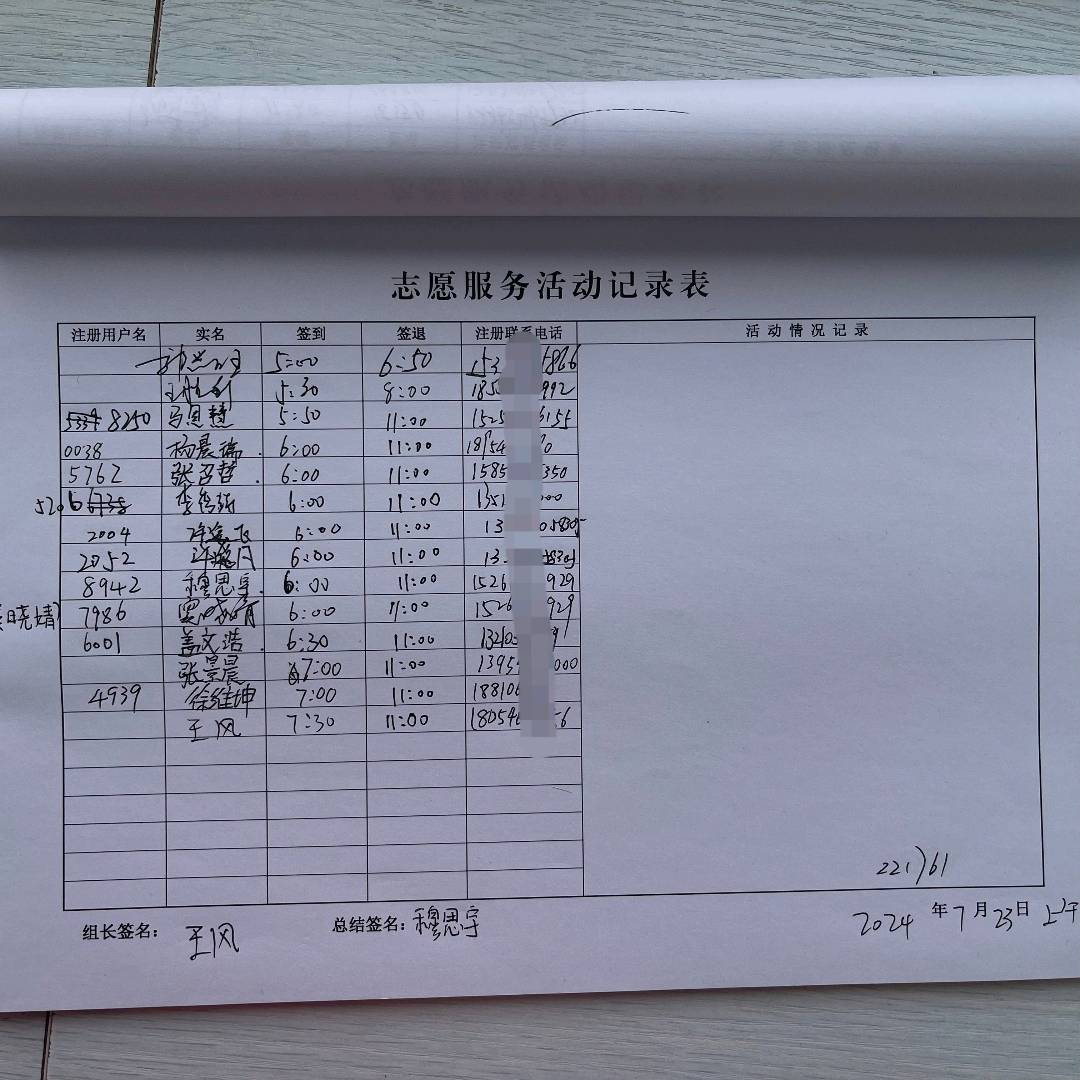 志愿服务活动记录表
注册用户名 实名 签到 签退 注册联系电话 活动情况记录
5:00 6:50 153 5866
5:30 8:00 185 992
8250 马恩慧 5:50 11:00 1525 6155
0038 杨晨瑞 6:00 11:00 1854 0
5762 张召哲 6:00 11:00 1585 350
5206 6:00 11:00 1351 000
2004 6:00 11:00 13 0580
2052 6:00 11:00 13
8942 穆思宇 6:00 11:00 1526 929
晓婧) 7986 6:00 11:00 1526 929
6001 盖文浩 6:30 11:00 1320
张景晨 7:00 11:00 1395 000
4939 徐维坤 7:00 11:00 1881
王风 7:30 11:00 18054 6
221)61
组长签名: 王风 总结签名: 穆思宇 2024年7月23日 上午